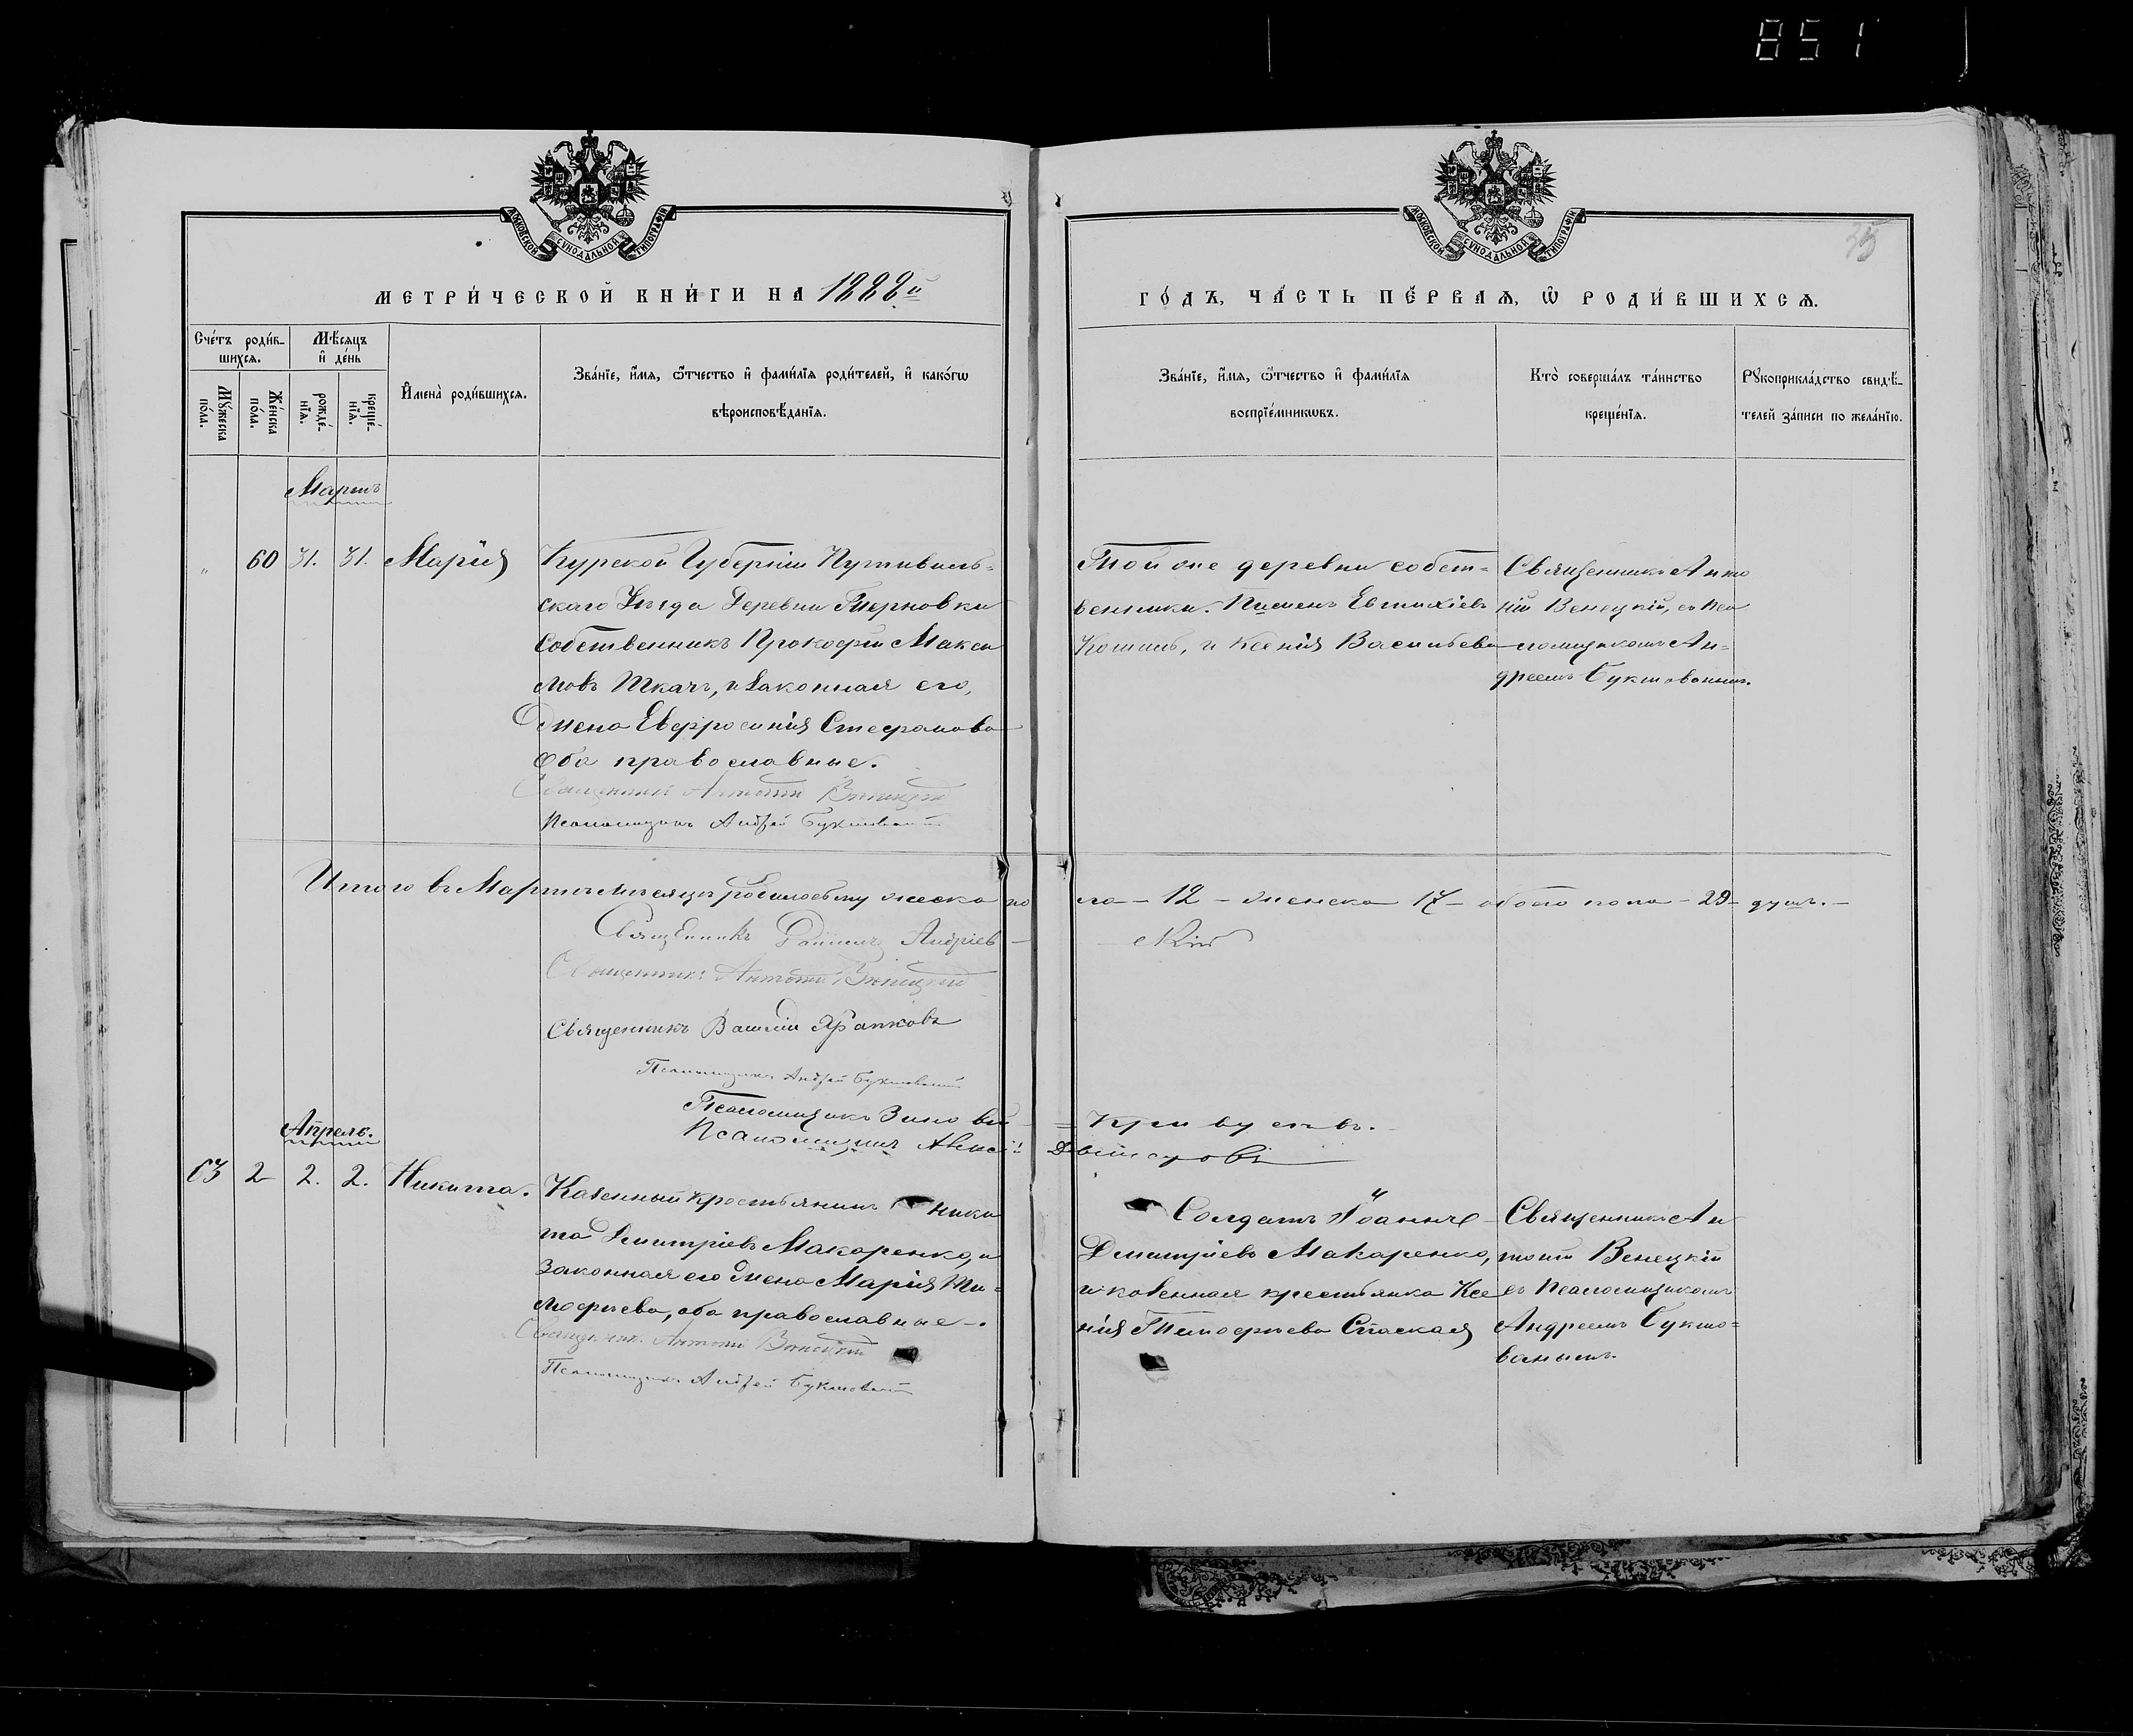 851
МОСКОВСКОЙ СУНОДАЛЬНОЙ ТИПОГРАФІИ
МОСКОВСКОЙ СУНОДАЛЬНОЙ ТИПОГРАФІИ
35
МЕТРИ́ЧЕСКОЙ КНИ́ГИ НА 1888й
ГО́ДЪ, ЧА́СТЬ ПЕ́РВАѦ, Ѿ РОДИ́ВШИХСѦ.
Сче́тъ роди́в-
шихсѧ.
Мѣ́сѧцъ
и҆ де́нь
Мꙋ́жеска
по́ла.
Же́нска
по́ла.
рожде́-
нїѧ.
креще́-
нїѧ.
И҆мена̀ роди́вшихсѧ.
Зва́нїе, и҆́мѧ, ѻ҆́тчество и҆ фами́лїѧ роди́телей, и҆ како́гѡ
вѣроисповѣ́данїѧ.
Зва́нїе, и҆́мѧ, ѻ҆́тчество и҆ фами́лїѧ
воспрїе́мникѡвъ.
Кто̀ соверша́лъ та́инство
креще́нїѧ.
Рꙋкоприкла́дство свидѣ́-
телей за́писи по жела́нїю.
Мартъ
„ 60 31. 31. Марія
Курской Губерніи Путивль-
скаго Уѣзда Деревни Терновки
Собственникъ Прокофій Макси
мовъ Ткачъ, и законная его,
жена Евфросинія Стефанова
Оба православные.
Священникъ Антоній Венецкій
Псаломщикъ Андрей Буктованый
Той же деревни собст-
венники. Пименъ Евтихіевъ
и Ксенія Васильева
Священникъ Анто
ній Венецкій, съ Пса
ломщикомъ Ан-
дреемъ Буктованымъ.
Итого въ Мартѣ мѣсяцѣ родилось мужеска по ла – 12 – женска 17 – обоего пола – 29 – душъ. –
Священникъ Даніилъ Андріев – скій
Священникъ Антоній Венецкій
Священникъ Василій Храпковъ
Псаломщикъ Андрей Буктованый
Псаломщикъ Зино вій = Кри
Псаломщикъ Алексій
Апрель.
63 2 2. 2. Никита.
Казенный крестьянинъ Ники
та Димитріевъ Макаренко, и
Законная его жена Марія Ти-
мофѣева, оба православные –.
Священник. Антоній Венецкій
Псаломщикъ Андрей Буктованый
Солдатъ Іоаннъ
Димитріевъ Макаренко,
и козенная крестьянка Ксе
нія Тимофѣева Спаская
Священникъ Ан
тоній Венецкій
съ Псаломщикомъ
Андреемъ Букто-
ванымъ.